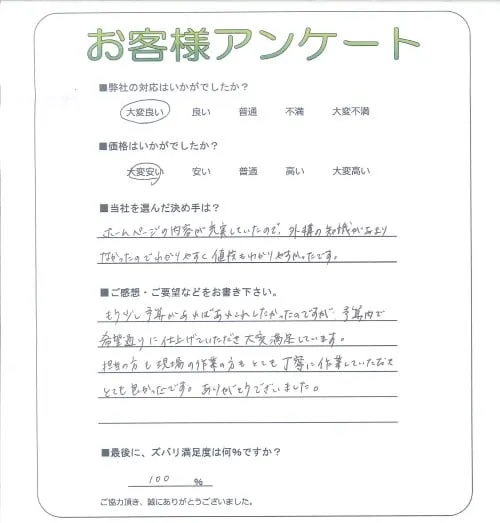 お客様アンケート
■弊社の対応はいかがでしたか?
大変良い 良い 普通 不満 大変不満
■価格はいかがでしたか?
大変安い 安い 普通 高い 大変高い
■当社を選んだ決め手は?
ホームページの内容が充実していたので、外構の知識があまり
なかったのでわかりやすく値段もわかりやすかったです。
■ご感想・ご要望などをお書き下さい。
もう少し予算があればあれこれしたかったのですが 予算内で
希望通りに仕上げていただき大変満足しています。
担当の方も現場の作業の方もとても丁寧に作業していただいて
とても良かったです。ありがとうございました。
■最後に、ズバリ満足度は何%ですか?
100 %
ご協力頂き、誠にありがとうございました。